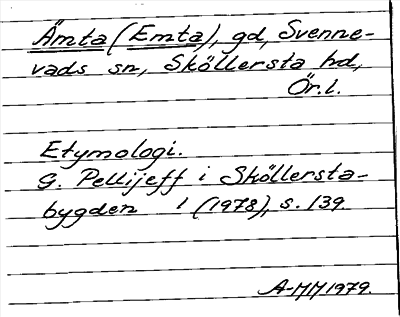 Ämta (Emta), gd, Svenne-
vads sn, Sköllersta hd,
Ör.l.
Etymologi.
G. Pellijeff i Sköllersta-
bygden 1 (1978), s. 139.
A-MM 1979.